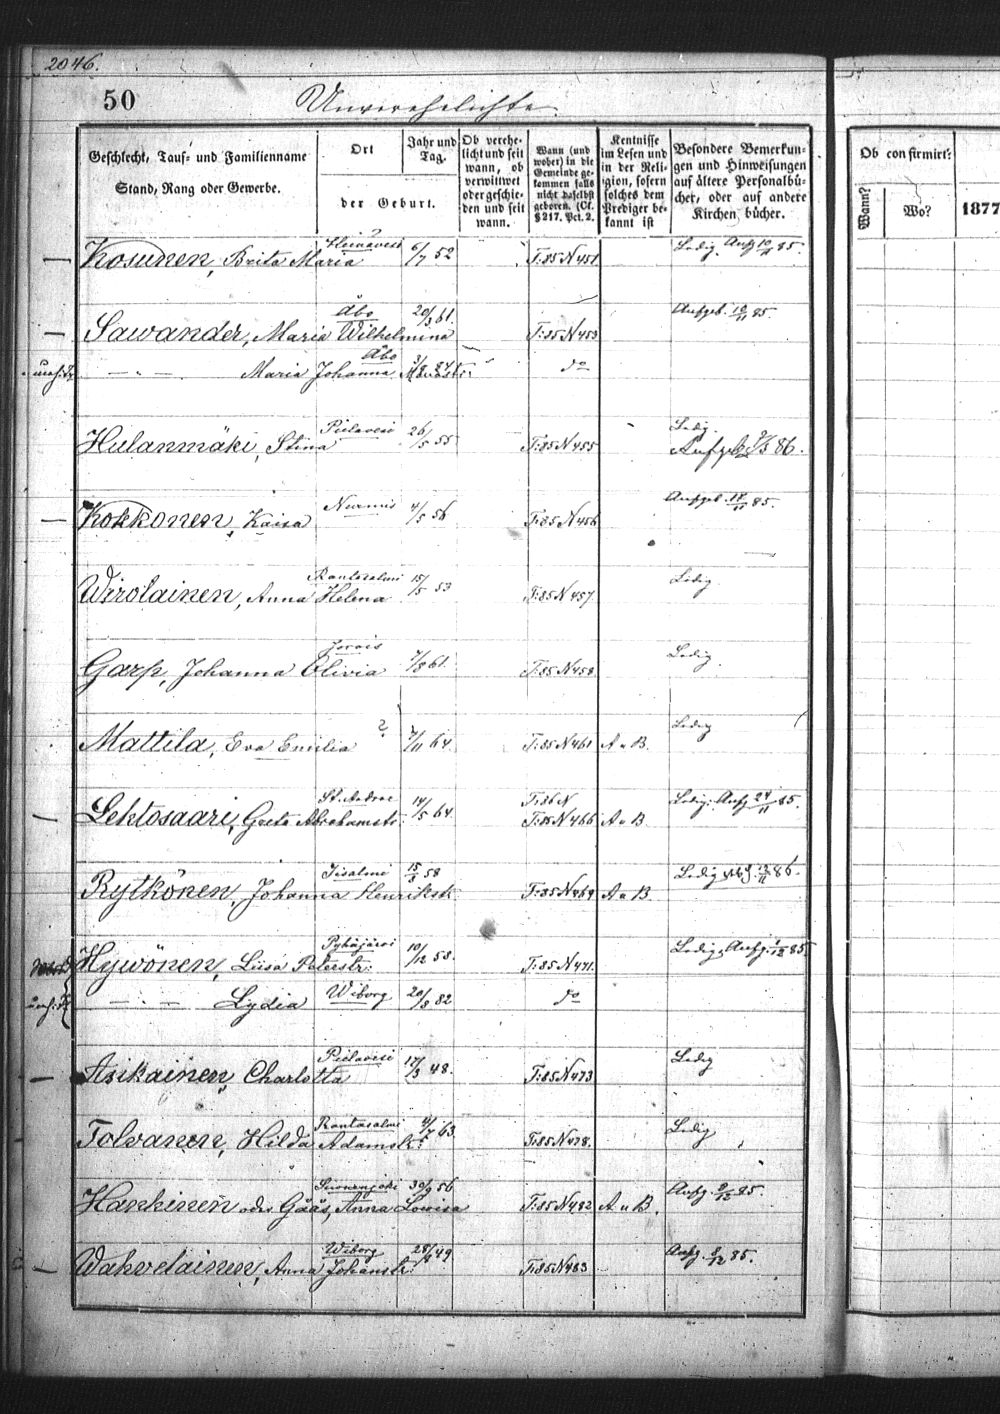 2046.
50 Unverehelichte
Geschlecht, Tauf- und Familienname
Stand, Rang oder Gewerbe.
Ort
der Geburt.
Jahr und
Tag.
Ob verehe-
licht und seit
wann, ob
verwittwet
oder geschie-
den und seit
wann.
Wann (und
woher) in die
Gemeinde ge-
kommen falls
nicht daselbst
geboren. (Cf.
§ 217. Pct. 2.
Kentnisse
im Lesen und
in der Reli-
gion, sofern
solches dem
Prediger be-
kannt ist
Besondere Bemerkun-
gen und Hinweisungen
auf ältere Personalbü-
cher, oder auf andere
Kirchenbücher.
Ob confirmirt?
Wann?
Wo?
1877
Heinävesi ? Ledig. Aufg 10/11 85.
Kosunen, Brita Maria 6/7 52 T: 85 N 451
Åbo 20/3 61. Aufgeb. 10/11 85.
Sawander, Maria Wilhelmina T: 85 N 453
Åbo
— " — Maria Johanna do
Pielavesi 26/5 55 Ledig.
Hulanmäki, Stina T: 85 N 455 Aufgeb 86.
Nurmis 4/5 56 Aufgeb. 85.
Kokkonen, Kaisa T: 85 N 456
Rantasalmi 15/5 53 Ledig
Wirolainen, Anna Helena T: 85 N 457
Jorois Ledig
Garp, Johanna Olivia 7/8 61. T: 85 N 458
? Ledig
Mattila, Eva Emilia 7/11 64. T: 85 N 461 A u B.
St. Andreae 14/5 64 T: 86 N Ledig: Aufg 24/11 85.
Lehtosaari, Greta Abrahamstr. T: 85 N 466 A u B
Iisalmi 15/8 58 Ledig 86.
Rytkönen, Johanna Henrikstr. T: 85 N 469 A u B
Pyhäjärvi 10/12 58. Ledig. Aufg. 1/12 85.
Hywönen, Liisa Peterstr: T: 85 N 471.
— " — Lydia Wiborg 20/8 82 do
Pielavesi 17/3 48. Ledig
Asikainen, Charlotta T: 85 N 473
Rantasalmi 4/7 63 Ledig
Tolvanen, Hilda Adamstr: T: 85 N 478.
30/9 56 Aufg. 8/12 85.
Hankinen oder Gåås, Anna Lowisa T: 85 N 482 A u B.
Wiborg 28/9 49 Aufg. 8/12 85.
Wahvelainen, Anna Johanstr: T: 85 N 483